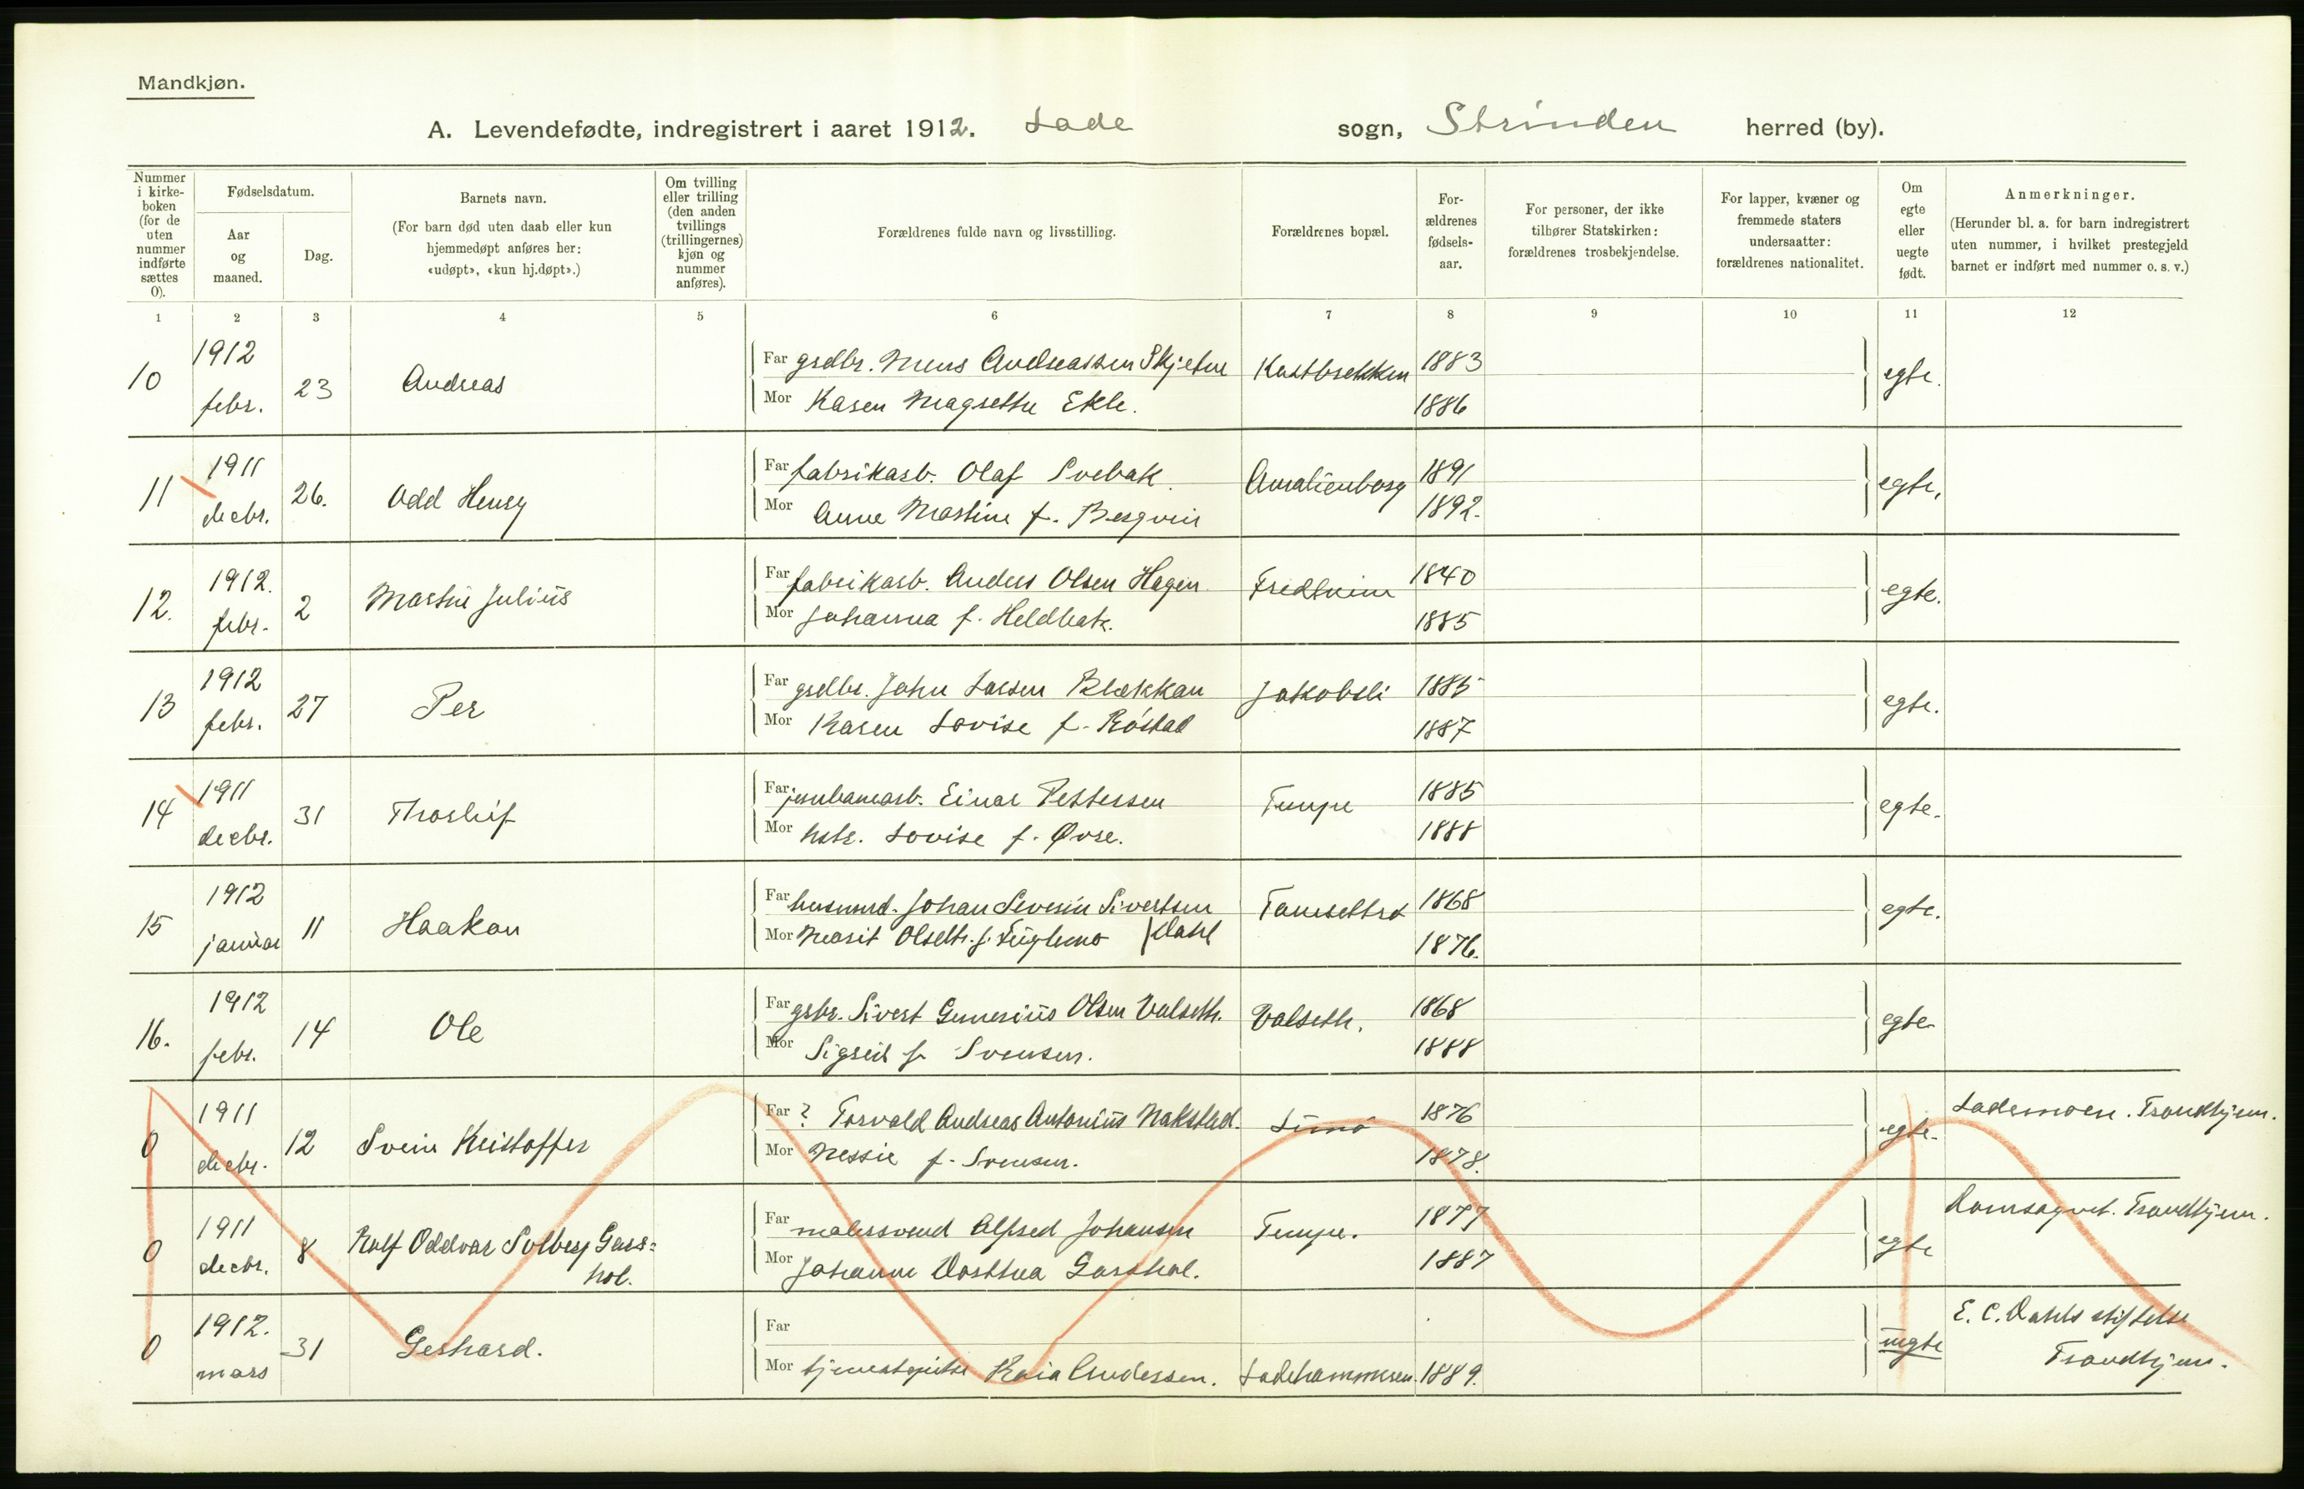 Mandkjøn.
A. Levendefødte, indregistrert i aaret 1912. Lade sogn, Strinden herred (by).
Nummer i kirke-boken (for de uten nummer indførte sættes 0).
Fødselsdatum.
Aar og maaned.
Dag.
Barnets navn.
(For barn død uten daab eller kun hjemmedøpt anføres her: «udøpt», «kun hj.døpt».)
Om tvilling eller trilling (den anden tvillings (trillingernes) kjøn og nummer anføres).
Forældrenes fulde navn og livsstilling.
Forældrenes bopæl.
For-ældrenes fødsels-aar.
For personer, der ikke tilhører Statskirken: forældrenes trosbekjendelse.
For lapper, kvæner og fremmede staters undersaatter: forældrenes nationalitet.
Om egte eller uegte født.
Anmerkninger.
(Herunder bl. a. for barn indregistrert uten nummer, i hvilket prestegjeld barnet er indført med nummer o. s. v.)
1 2 3 4 5 6 7 8 9 10 11 12
10 1912 febr. 23 Andreas
Far grdbr. Mons Andreassen Skjetne 1883
Mor Karen Magrethe Ekle. 1886 egte.
11 1911 decbr. 26. Odd Henry
Far fabrikarb. Olaf Svebak. Amalienborg 1891
Mor Anna Martine f. 1892. egte.
12. 1912. febr. 2 Martin Julius
Far fabrikarb. Anders Olsen Hagen. Fredheim 1840
Mor Johanna f. Heldbak. 1885 egte.
13 1912 febr. 27 Per
Far grdbr. John Larsen Blækkan Jakobsli 1885
Mor Karen Lovise f. Röstad 1887 egte.
14 1911 decbr. 31 Thorleif
Far jernbanearb. Einar Pettersen Tempe 1885
Mor hstr. Lovise f. Øvre. 1888 egte.
15 1912 januar 11 Haakon
Far husmd. Johan Severin Sivertsen 1868
Mor Marit Olsdtr. f. Fuglemo / Dahl 1876. egte.
16. 1912 febr. 14 Ole
Far gbr. Sivert Gunerius Olsen Valseth. Valseth. 1868
Mor Sigrid f. Svensen. 1888 egte.
0 1911 decbr. 12 Svein Kristoffer
Far ? Torvald Andreas Antonius Nakstad. 1876
Mor Nessie f. Svensen. 1878. egte. Lademoen. Trondhjem.
0 1911 decbr. 8 Rolf Oddvar Solberg Gars=
hol.
Far malersvend Alfred Johansen Tempe. 1877
Mor Johanne Dorthea Garshol. 1887 egte Domsognet. Trondhjem.
0 1912. mars 31 Gerhard.
Far
Mor tjenestepike Kaia Andersen. Ladehammeren. 1889. uegte E. C. Dahls stiftelse
Trondhjem.